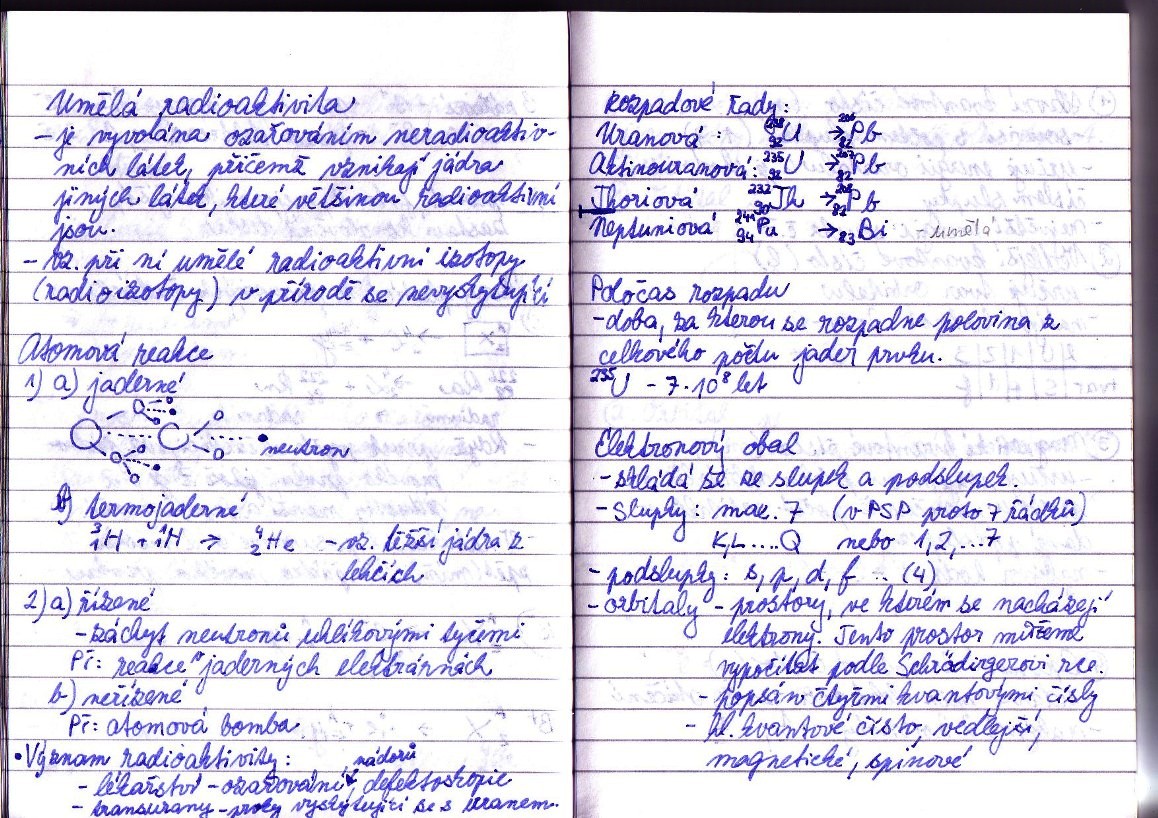 Umělá radioaktivita
- je vyvolána ozařováním neradioaktiv-
ních látek, přičemž vznikají jádra
jiných látek, které většinou radioaktivní
jsou.
- vz. při ní umělé radioaktivní izotopy
(radioizotopy) v přírodě se nevyskytující
Atomová reakce
1) a) jaderné
neutron
b) termojaderné
³₁H + ¹₁H → ⁴₂He - vz. těžší jádra z
lehčích
2) a) řízené
- záchyt neutronů uhlíkovými tyčemi
Př: reakce v jaderných elektrárnách
b) neřízené
Př: atomová bomba
• Význam radioaktivity:
nádorů
- lékařství - ozařování, defektoskopie
- transurany - prvky vyskytující se s uranem.
Rozpadové řady:
Uranová: ²³⁸₉₂U → ²⁰⁶₈₂Pb
Aktinouranová: ²³⁵₉₂U → ²⁰⁷₈₂Pb
Thoriová ²³²₉₀Th → ²⁰⁸₈₂Pb
Neptuniová ²⁴¹₉₄Pu → ₈₃Bi - umělá
Poločas rozpadu
- doba, za kterou se rozpadne polovina z
celkového počtu jader prvku.
²³⁵U - 7·10⁸ let
Elektronový obal
- skládá se ze slupek a podslupek.
- slupky: max. 7 (v PSP proto 7 řádků)
K,L....Q nebo 1,2,...7
- podslupky: s, p, d, f .. (4)
- orbitaly - prostory, ve kterém se nacházejí
elektrony. Tento prostor můžeme
vypočítat podle Schrödirgerovi rce.
- popsán čtyřmi kvantovými čísly
- hl. kvantové číslo, vedlejší,
magnetické, spinové